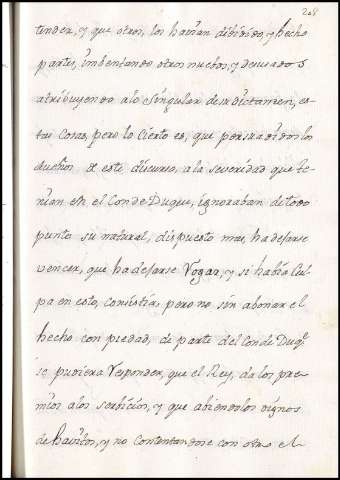 208
tender, y que otros, los havian dibidido, y hecho
partes, imbentando otros nuebos, y deseado
atribuyendo alo singular de su dictamen, es-
tas cosas, pero lo cierto es, que persuadidos los
dueños de este discurso, ala severidad que te-
nian en el Conde Duque, ignoraban de todo
punto su natural, dispuesto mas, ha dejarse
vencer, que ha dejarse Vogar, y si habia Cul-
pa en esto, consistia, pero no sin abonar el
hecho con piedad, de parte del Conde Duqe
se pudiera Responder, que el Rey, da los pre-
mios alos serbicios, y que abiendolos dignos
de havidos, y no contentandose con otro el